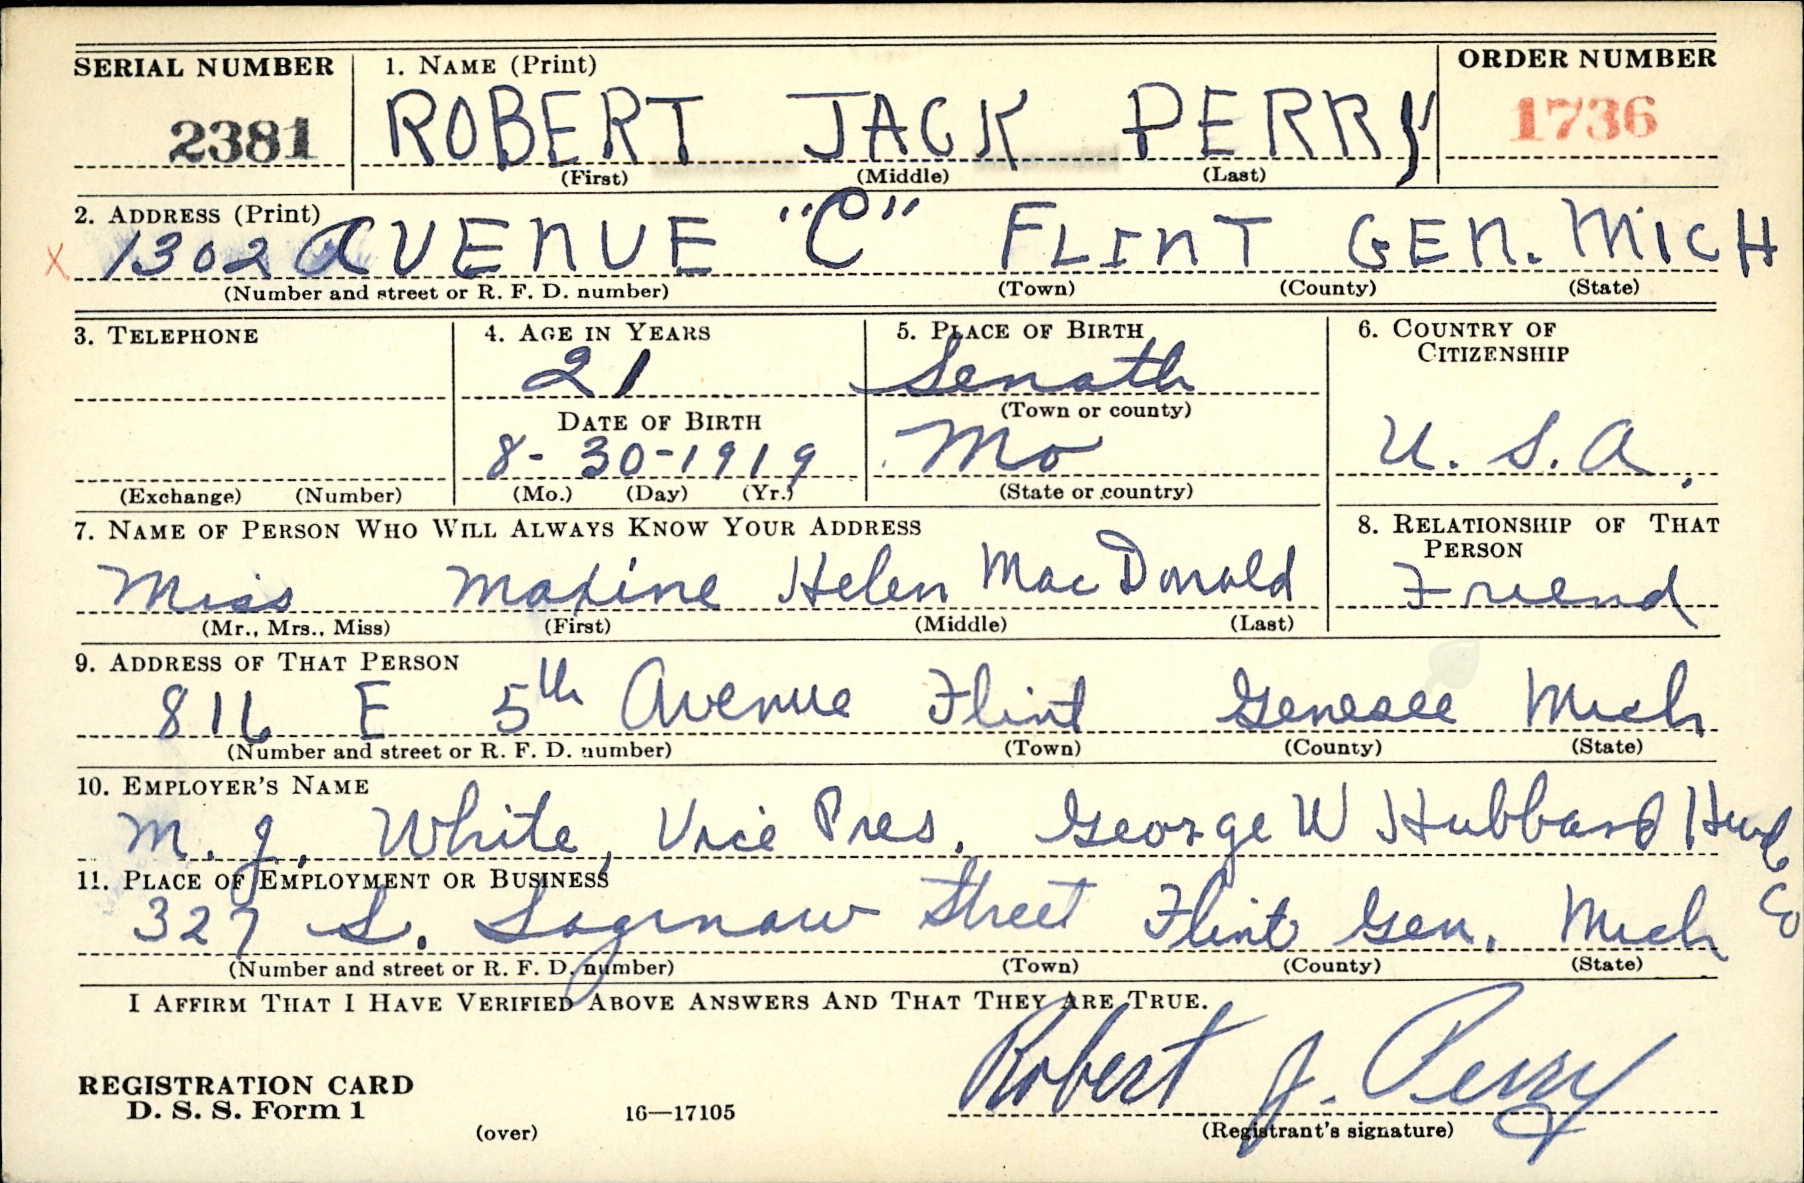 SERIAL NUMBER 1. NAME (Print) ORDER NUMBER
2381 ROBERT JACK PERRY 1736
(First) (Middle) (Last)
2. ADDRESS (Print)
X 1302 AVENUE "C" FLINT GEN. MICH
(Number and street or R. F. D. number) (Town) (County) (State)
3. TELEPHONE 4. AGE IN YEARS 5. PLACE OF BIRTH 6. COUNTRY OF CITIZENSHIP
21 Senath
(Town or county)
DATE OF BIRTH
8-30-1919 Mo U. S. A.
(Exchange) (Number) (Mo.) (Day) (Yr.) (State or country)
7. NAME OF PERSON WHO WILL ALWAYS KNOW YOUR ADDRESS 8. RELATIONSHIP OF THAT PERSON
Miss Maxine Helen MacDonald Friend
(Mr., Mrs., Miss) (First) (Middle) (Last)
9. ADDRESS OF THAT PERSON
816 E 5th Avenue Flint Genesee Mich
(Number and street or R. F. D. number) (Town) (County) (State)
10. EMPLOYER'S NAME
M. J. White, Vice Pres. George W Hubbard Hwd Co
11. PLACE OF EMPLOYMENT OR BUSINESS
327 S. Saginaw Street Flint Gen. Mich
(Number and street or R. F. D. number) (Town) (County) (State)
I AFFIRM THAT I HAVE VERIFIED ABOVE ANSWERS AND THAT THEY ARE TRUE.
Robert J. Perry
REGISTRATION CARD
D. S. S. Form 1 16—17105
(over) (Registrant's signature)